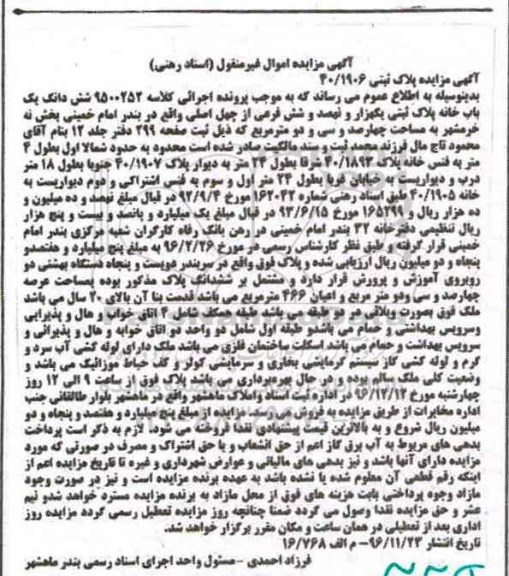 آگهی مزایده اموال غیرمنقول (اسناد رهنی)
آگهی مزایده پلاک ثبتی ۴۰/۱۹۰۶
بدینوسیله به اطلاع عموم می رساند که به موجب پرونده اجرائی کلاسه ۹۵۰۰۲۵۲ شش دانک یک
باب خانه پلاک ثبتی یکهزار و نهصد و شش فرعی از چهل اصلی واقع در بندر امام خمینی بخش نه
خرمشهر به مساحت چهارصد و سی و دو مترمربع که ذیل ثبت صفحه ۲۹۹ دفتر جلد ۱۲ بنام آقای
محمود تاج مال فرزند محمد ثبت و سند مالکیت صادر شده است محدود به حدود شمالا اول بطول ۴
متر به فنس خانه پلاک ۴۰/۱۸۹۳ شرقا بطول ۲۴ متر به دیوار پلاک ۴۰/۱۹۰۷ جنوبا بطول ۱۸ متر
درب و دیواریست به خیابان غربا بطول ۲۴ متر اول و سوم به فنس اشتراکی و دوم دیواریست به
خانه ۴۰/۱۹۰۵ طبق اسناد رهنی شماره ۱۶۲۰۴۲ مورخ ۹۲/۹/۴ در قبال مبلغ نهصد و ده میلیون و
ده هزار ریال و ۱۶۵۲۹۹ مورخ ۹۳/۶/۱۵ در قبال مبلغ یک میلیارد و پانصد و بیست و پنج هزار
ریال تنظیمی دفترخانه ۳۲ بندر امام خمینی در رهن بانک رفاه کارگران شعبه مرکزی بندر امام
خمینی قرار گرفته و طبق نظر کارشناس رسمی در مورخ ۹۶/۲/۲۶ به مبلغ پنج میلیارد و هفتصدو
پنجاه و دو میلیون ریال ارزیابی شده و پلاک فوق واقع در سربندر دویست و پنجاه دستگاه بهشتی دو
روبروی آموزش و پرورش قرار دارد و مشتمل بر ششدانگ پلاک مذکور بوده بمساحت عرصه
چهارصد و سی ودو متر مربع و اعیان ۴۶۶ مترمربع می باشد قدمت بنا آن بالای ۲۰ سال می باشد
ملک فوق بصورت ویلائی در دو طبقه می باشد طبقه همکف شامل ۴ اتاق خواب و هال و پذیرایی
وسرویس بهداشتی و حمام می باشدو طبقه اول شامل دو واحد دو اتاق خوابه و هال و پذیرائی و
سرویس بهداشت و حمام می باشد اسکلت ساختمان فلزی می باشد ملک دارای لوله کشی آب سرد و
گرم و لوله کشی گاز سیستم گرمایشی بخاری و سرمایشی کولر و کف حیاط موزائیک می باشد و
وضعیت کلی ملک سالم بوده و در حال بهره‌برداری می باشد پلاک فوق از ساعت ۹ الی ۱۲ روز
چهارشنبه مورخ ۹۶/۱۲/۱۳ در اداره ثبت اسناد واملاک ماهشهر واقع در ماهشهر بلوار طالقانی جنب
اداره مخابرات از طریق مزایده به فروش می رسد. مزایده از مبلغ پنج میلیارد و هفتصد و پنجاه و دو
میلیون ریال شروع و به بالاترین قیمت پیشنهادی نقدا فروخته می شود. لازم به ذکر است پرداخت
بدهی های مربوط به آب برق گاز اعم از حق انشعاب و یا حق اشتراک و مصرف در صورتی که مورد
مزایده دارای آنها باشد و نیز بدهی های مالیاتی و عوارض شهرداری و غیره تا تاریخ مزایده اعم از
اینکه رقم قطعی آن معلوم شده یا نشده باشد به عهده برنده مزایده است و نیز در صورت وجود
مازاد وجوه پرداختی بابت هزینه های فوق از محل مازاد به برنده مزایده مسترد خواهد شدو نیم
عشر و حق مزایده نقدا وصول می گردد ضمنا چنانچه روز مزایده تعطیل رسمی گردد مزایده روز
اداری بعد از تعطیلی در همان ساعت و مکان مقرر برگزار خواهد شد.
تاریخ انتشار ۹۶/۱۱/۲۳- م الف ۱۶/۷۶۸
فرزاد احمدی - مسئول واحد اجرای اسناد رسمی بندر ماهشهر